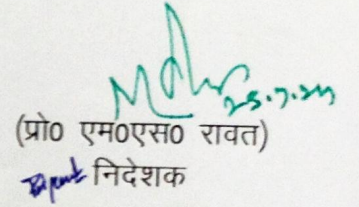 25.7.24
(प्रो0 एम0एस0 रावत)
निदेशक